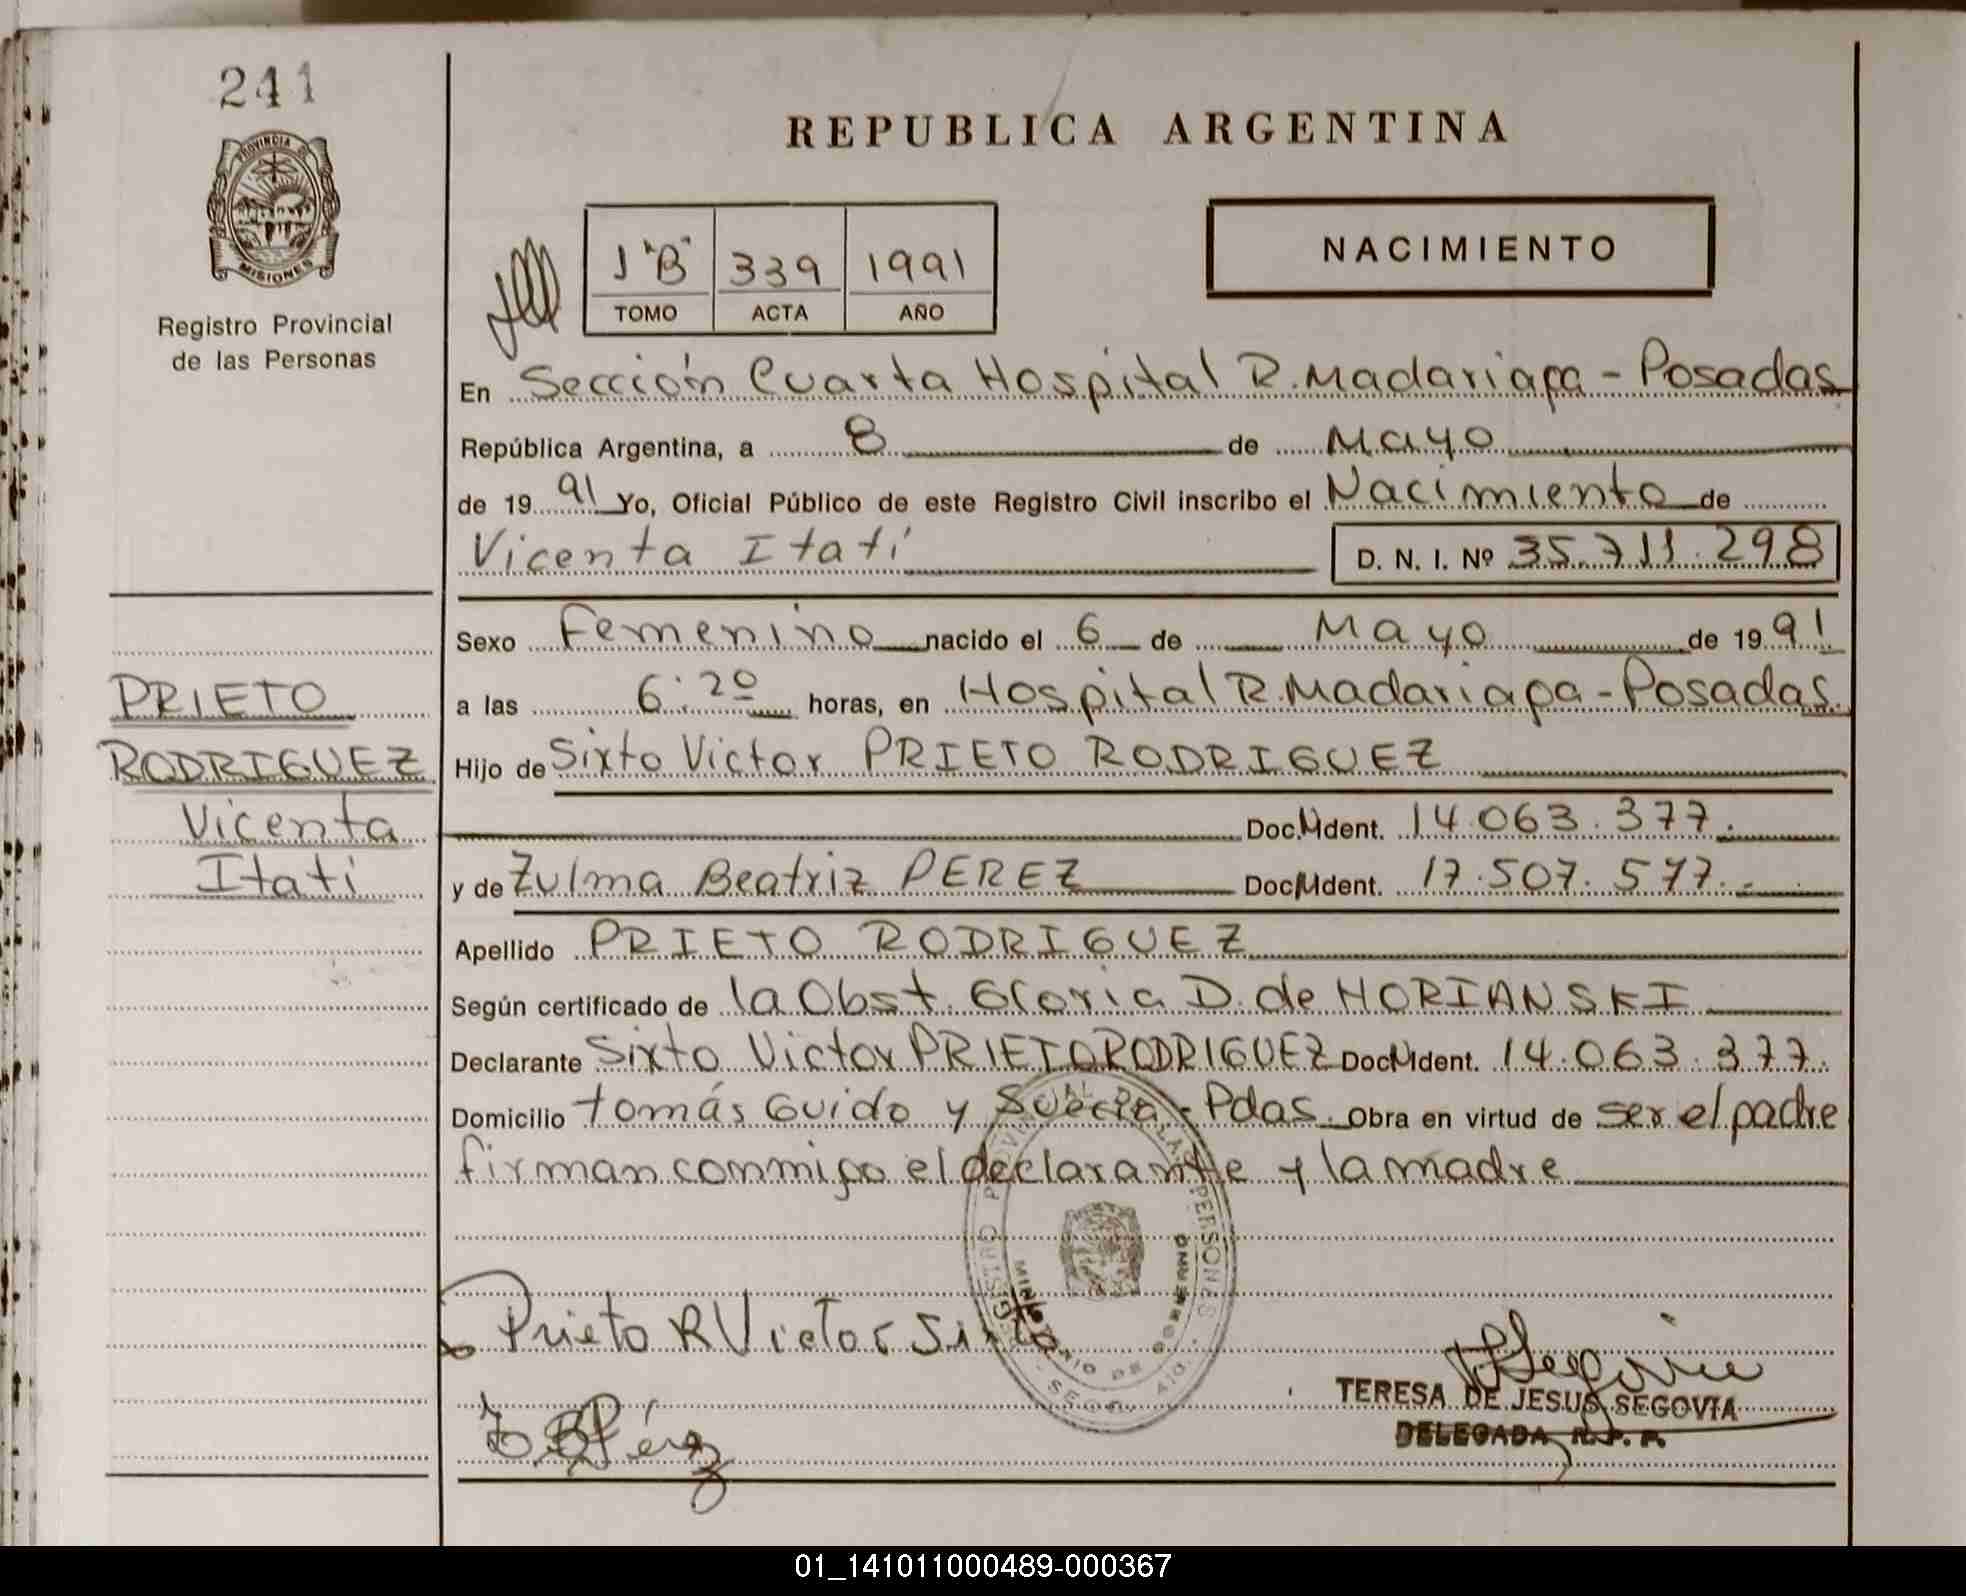 241
PROVINCIA DE
MISIONES
Registro Provincial
de las Personas
REPUBLICA ARGENTINA
1 "B" 339 1991
TOMO ACTA AÑO
NACIMIENTO
En Sección Cuarta Hospital R. Madariaga - Posadas
República Argentina, a 8 de Mayo
de 1991 Yo, Oficial Público de este Registro Civil inscribo el Nacimiento de
Vicenta Itatí D. N. I. Nº 35.711.298
Sexo Femenino nacido el 6 de Mayo de 1991
a las 6:20 horas, en Hospital R. Madariaga - Posadas.
Hijo de Sixto Victor PRIETO RODRIGUEZ
Doc. Ident. 14.063.377.
y de Zulma Beatriz PEREZ Doc. Ident. 17.507.577.-
Apellido PRIETO RODRIGUEZ
Según certificado de la Obst. Gloria D. de HORIANSKI
Declarante Sixto Victor PRIETO RODRIGUEZ Doc. Ident. 14.063.377.
Domicilio tomás Guido y Suecia - Pdas. Obra en virtud de ser el padre
firman conmigo el declarante y la madre
PRIETO
RODRIGUEZ
Vicenta
Itatí
Prieto R Victor Sixto
Z B Pérez
REGISTRO PROVINCIAL DE LAS PERSONAS
MINISTERIO DE GOBIERNO
TERESA DE JESUS SEGOVIA
DELEGADA R. P. P.
01_141011000489-000367